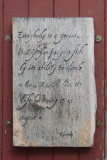 Everybody is a genius.
But if you judge a fish
by its ability to climb
a tree, it will live its
life believing it is
stupid.